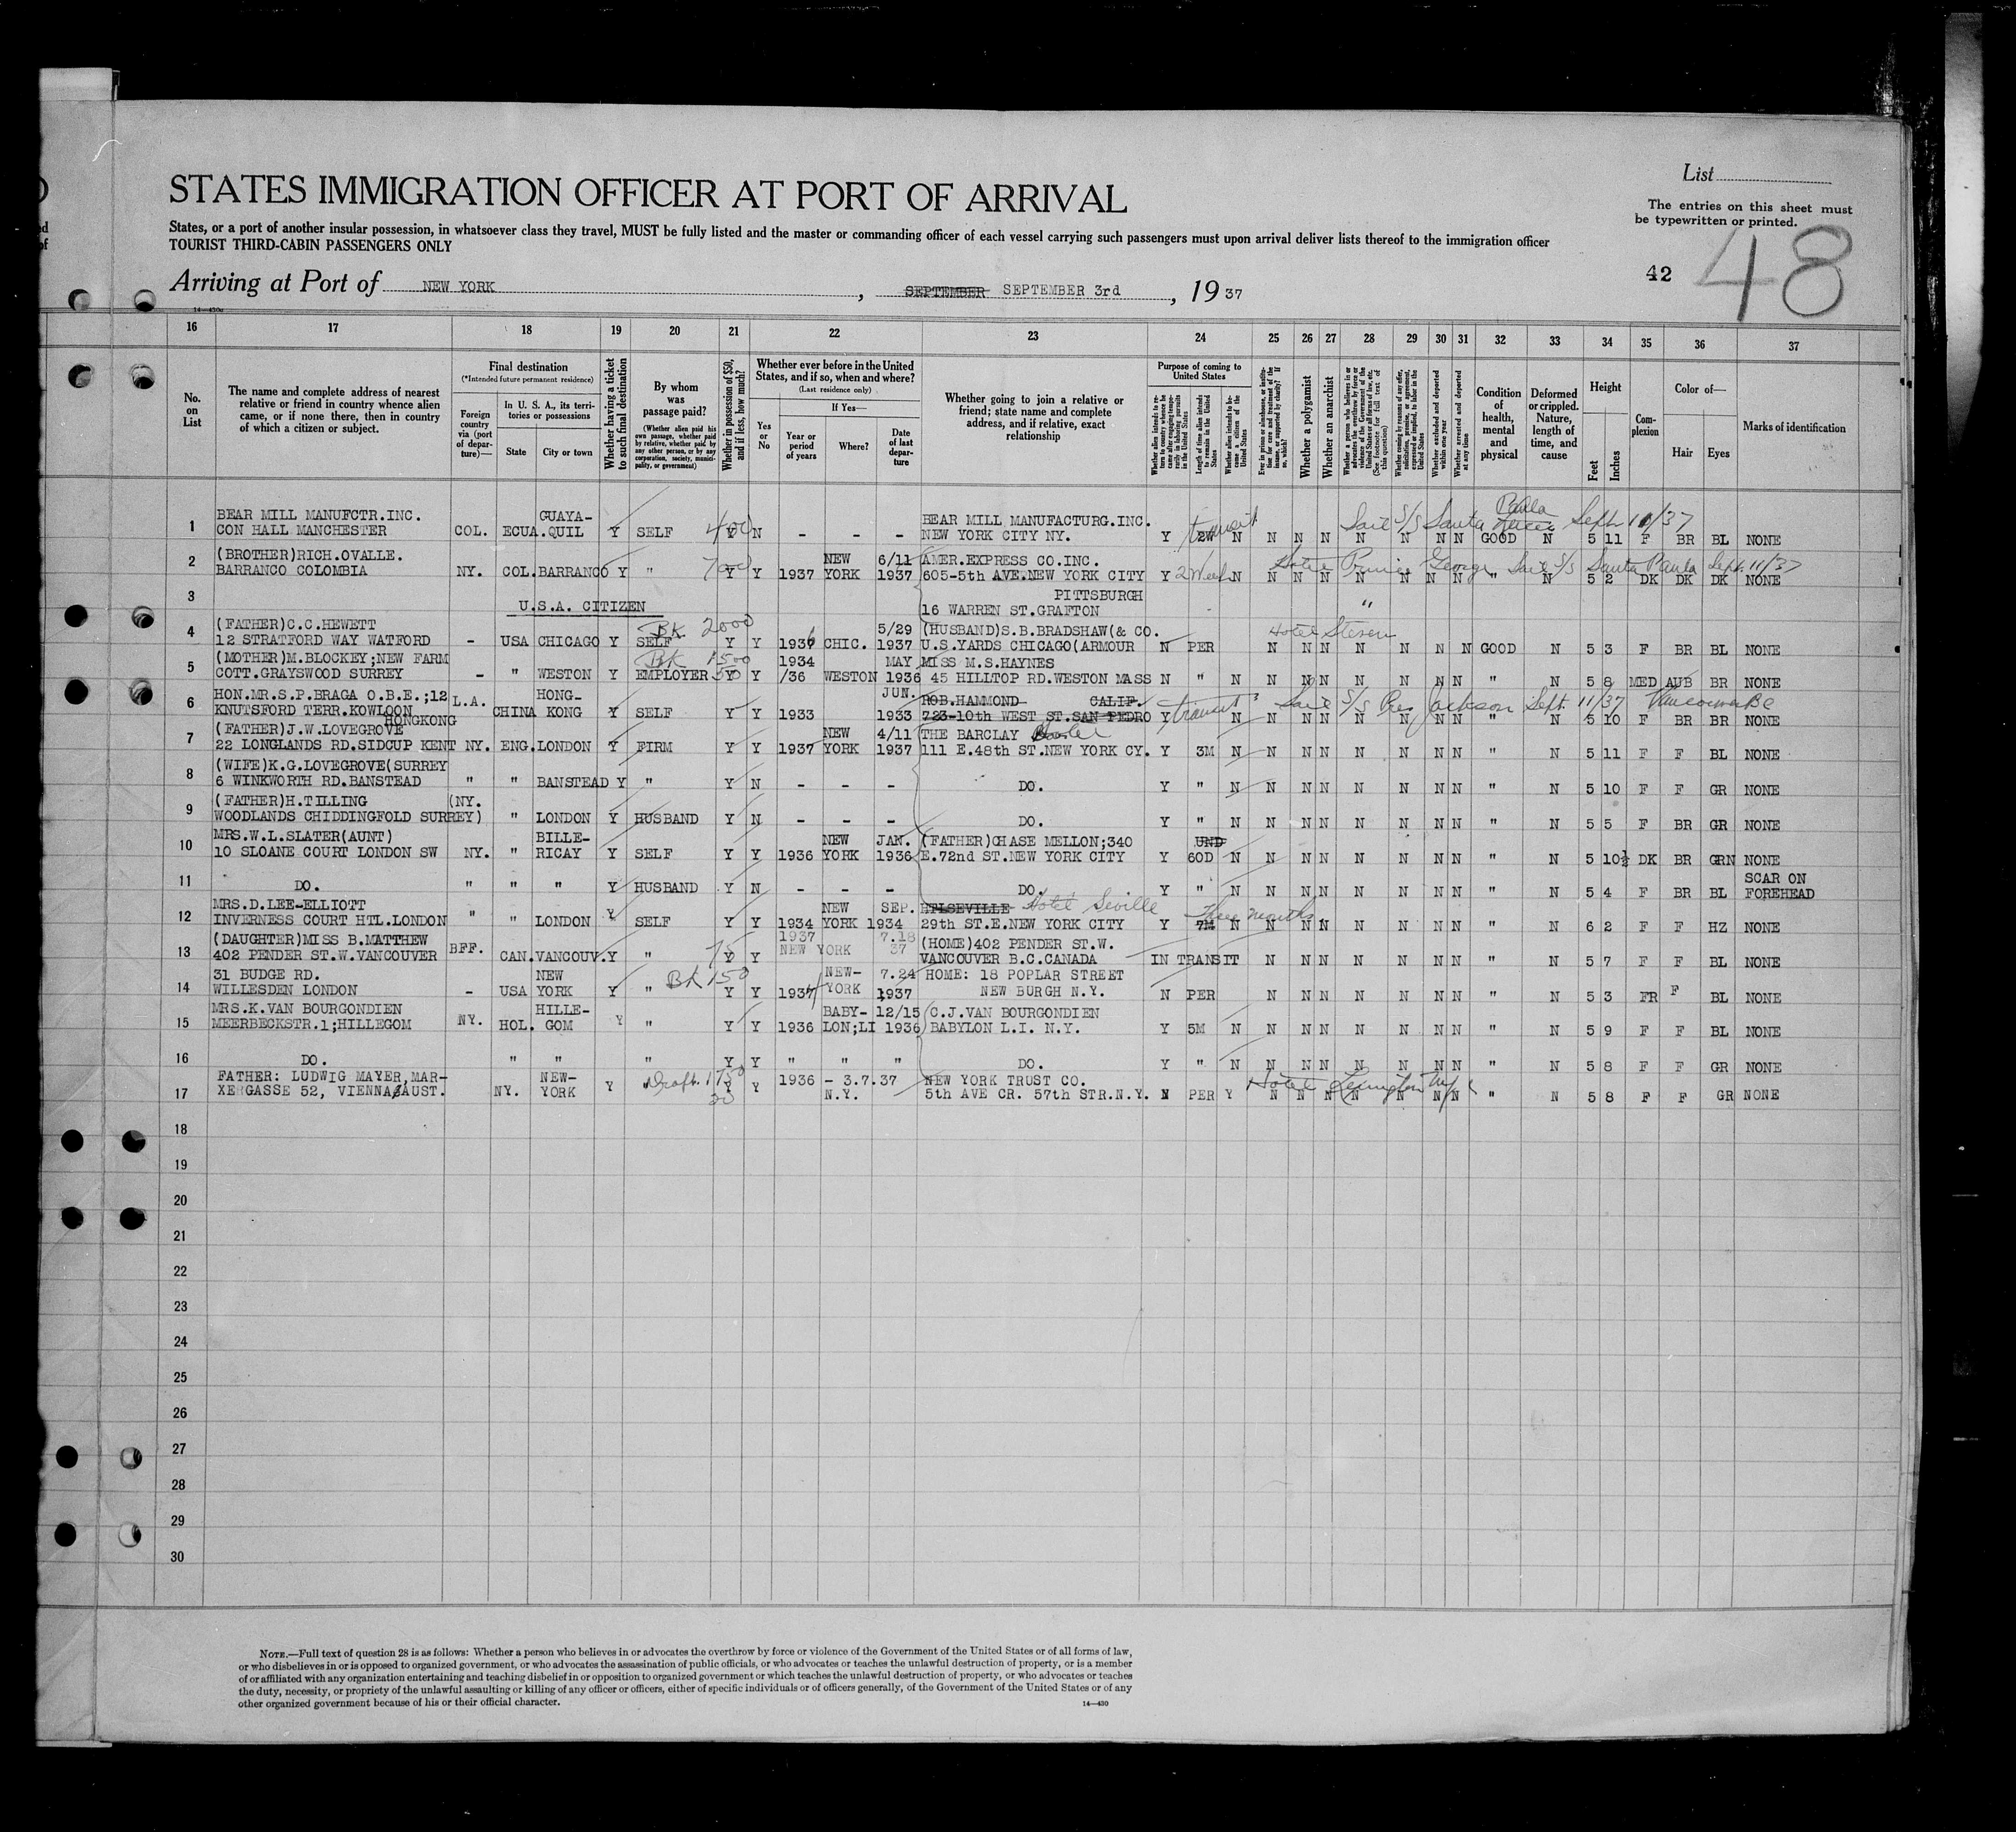 STATES IMMIGRATION OFFICER AT PORT OF ARRIVAL
List
The entries on this sheet must
be typewritten or printed.
States, or a port of another insular possession, in whatsoever class they travel, MUST be fully listed and the master or commanding officer of each vessel carrying such passengers must upon arrival deliver lists thereof to the immigration officer
TOURIST THIRD-CABIN PASSENGERS ONLY
42 48
Arriving at Port of NEW YORK, SEPTEMBER SEPTEMBER 3rd, 19 37
16 17 18 19 20 21 22 23 24 25 26 27 28 29 30 31 32 33 34 35 36 37
No. on List
The name and complete address of nearest relative or friend in country whence alien came, or if none there, then in country of which a citizen or subject.
Final destination
(*Intended future permanent residence)
Foreign country via (port of departure)—
In U. S. A., its territories or possessions
State City or town
Whether having a ticket to such final destination
By whom was passage paid?
(Whether alien paid his own passage, whether paid by relative, whether paid by any other person, or by any corporation, society, municipality, or government)
Whether in possession of $50, and if less, how much?
Whether ever before in the United States, and if so, when and where?
(Last residence only)
Yes or No
If Yes—
Year or period of years Where? Date of last departure
Whether going to join a relative or friend; state name and complete address, and if relative, exact relationship
Purpose of coming to United States
Length of time alien intends to remain in the United States
Whether alien intends to become a citizen of the United States
Whether a polygamist
Whether an anarchist
Whether excluded and deported within one year
Whether arrested and deported at any time
Condition of health, mental and physical
Deformed or crippled. Nature, length of time, and cause
Height
Feet Inches
Complexion
Color of—
Hair Eyes
Marks of identification
1 BEAR MILL MANUFCTR.INC. CON HALL MANCHESTER COL. ECUA. GUAYA-QUIL Y SELF 400 Y N - - - BEAR MILL MANUFACTURG.INC. NEW YORK CITY NY. Y transit 2W N N N N N N N N GOOD N 5 11 F BR BL NONE
Sail S/S Santa Paula Sept 11/37
2 (BROTHER)RICH.OVALLE. BARRANCO COLOMBIA NY. COL. BARRANCO Y " 700 Y Y 1937 NEW YORK 6/11 1937 AMER.EXPRESS CO.INC. 605-5th AVE.NEW YORK CITY Y 2 Weeks N N N N N N N N " N 5 2 DK DK DK NONE
Hotel Prince George Sail S/S Santa Paula Sept. 11/37
3 U.S.A. CITIZEN PITTSBURGH 16 WARREN ST.GRAFTON "
4 (FATHER)C.C.HEWETT 12 STRATFORD WAY WATFORD - USA CHICAGO Y BK 2000 SELF Y Y 1936 CHIC. 5/29 1937 (HUSBAND)S.B.BRADSHAW(& CO. U.S.YARDS CHICAGO(ARMOUR N PER N N N N N N N GOOD N 5 3 F BR BL NONE
Hotel Steven
5 (MOTHER)M.BLOCKEY;NEW FARM COTT.GRAYSWOOD SURREY - " WESTON Y BK 1500 EMPLOYER Y Y 1934 /36 WESTON MAY 1936 MISS M.S.HAYNES 45 HILLTOP RD.WESTON MASS N " N N N N N N N N " N 5 8 MED AUB BR NONE
6 HON.MR.S.P.BRAGA O.B.E.;12 KNUTSFORD TERR.KOWLOON HONGKONG L.A. CHINA HONG-KONG Y SELF Y Y 1933 JUN. 1933 ROB.HAMMOND CALIF. 723-10th WEST ST.SAN PEDRO Y transit N N N N N N N N " N 5 10 F BR BR NONE
Sail S/S Pres Jackson Sept 11/37 Vancouver BC
7 (FATHER)J.W.LOVEGROVE 22 LONGLANDS RD.SIDCUP KENT NY. ENG. LONDON Y FIRM Y Y 1937 NEW YORK 4/11 1937 THE BARCLAY 111 E.48th ST.NEW YORK CY. Y 3M N N N N N N N N " N 5 11 F F BL NONE
8 (WIFE)K.G.LOVEGROVE(SURREY 6 WINKWORTH RD.BANSTEAD " " BANSTEAD Y " Y N - - - DO. Y " N N N N N N N N " N 5 10 F F GR NONE
9 (FATHER)H.TILLING WOODLANDS CHIDDINGFOLD SURREY) (NY. " LONDON Y HUSBAND Y N - - - DO. Y " N N N N N N N N " N 5 5 F BR GR NONE
10 MRS.W.L.SLATER(AUNT) 10 SLOANE COURT LONDON SW NY. " BILLE-RICAY Y SELF Y Y 1936 NEW YORK JAN. 1936 (FATHER)CHASE MELLON;340 E.72nd ST.NEW YORK CITY Y UND 60D N N N N N N N N " N 5 10½ DK BR GRN NONE
11 DO. " " " Y HUSBAND Y N - - - DO. Y " N N N N N N N N " N 5 4 F BR BL SCAR ON FOREHEAD
12 MRS.D.LEE-ELLIOTT INVERNESS COURT HTL.LONDON " " LONDON Y SELF Y Y 1934 NEW YORK SEP. 1934 HTLSEVILLE Hotel Seville 29th ST.E.NEW YORK CITY Y Three months 7M N N N N N N N N " N 6 2 F F HZ NONE
13 (DAUGHTER)MISS B.MATTHEW 402 PENDER ST.W.VANCOUVER BFF. CAN. VANCOUV. Y " 75 Y Y 1937 NEW YORK 7.18 37 (HOME)402 PENDER ST.W. VANCOUVER B.C.CANADA IN TRANSIT N N N N N N N " N 5 7 F F BL NONE
14 31 BUDGE RD. WILLESDEN LONDON - USA NEW YORK Y " BK 150 Y Y 1937 NEW-YORK 7.24 1937 HOME: 18 POPLAR STREET NEW BURGH N.Y. N PER N N N N N N N " N 5 3 FR F BL NONE
15 MRS.K.VAN BOURGONDIEN MEERBECKSTR.1;HILLEGOM NY. HOL. HILLE-GOM Y " Y Y 1936 BABY-LON;LI 12/15 1936 C.J.VAN BOURGONDIEN BABYLON L.I. N.Y. Y 5M N N N N N N N N " N 5 9 F F BL NONE
16 DO. " " " Y Y " " " DO. Y " N N N N N N N N " N 5 8 F F GR NONE
17 FATHER: LUDWIG MAYER,MAR-XERGASSE 52, VIENNA AUST. NY. NEW-YORK Y " Draft Y Y 1936 - 3.7.37 N.Y. NEW YORK TRUST CO. 5th AVE CR. 57th STR.N.Y. N PER Y N N N N N N N " N 5 8 F F GR NONE
Hotel Lexington NY
18
19
20
21
22
23
24
25
26
27
28
29
30
NOTE.—Full text of question 28 is as follows: Whether a person who believes in or advocates the overthrow by force or violence of the Government of the United States or of all forms of law,
or who disbelieves in or is opposed to organized government, or who advocates the assassination of public officials, or who advocates or teaches the unlawful destruction of property, or is a member
of or affiliated with any organization entertaining and teaching disbelief in or opposition to organized government or which teaches the unlawful destruction of property, or who advocates or teaches
the duty, necessity, or propriety of the unlawful assaulting or killing of any officer or officers, either of specific individuals or of officers generally, of the Government of the United States or of any
other organized government because of his or their official character.
14—430